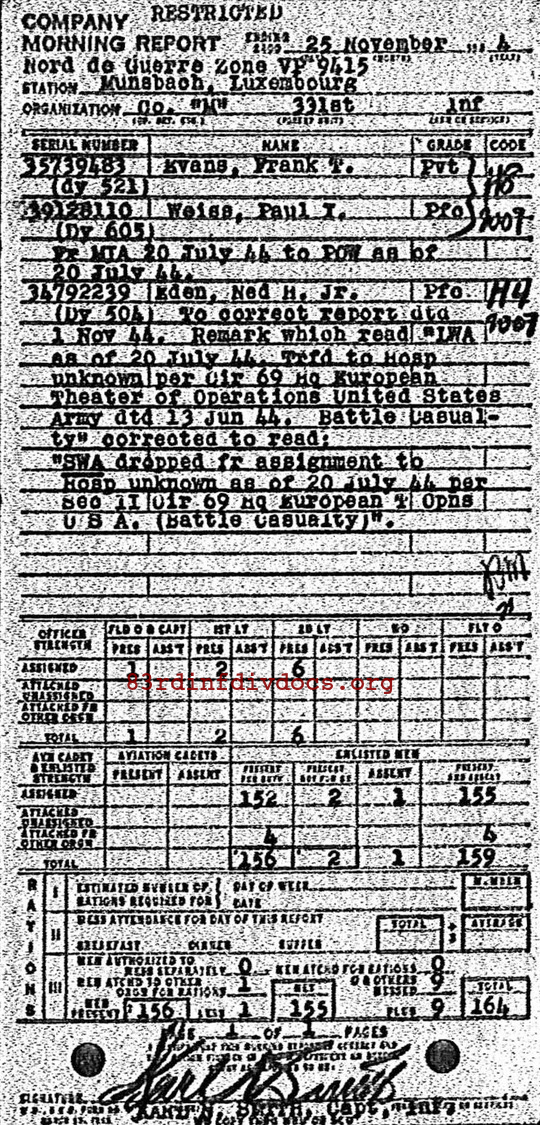 RESTRICTED
COMPANY
MORNING REPORT ENDING 2400 25 November 4
Nord de Guerre Zone VP 9415
STATION Munsbach, Luxembourg
ORGANIZATION Co. "M" 331st Inf
SERIAL NUMBER NAME GRADE CODE
35739483 Evans, Frank T. Pvt
(dy 521)
39128110 Weiss, Paul I. Pfc
(Dy 605)
Fr MIA 20 July 44 to POW as of
20 July 44.
34792239 Eden, Ned H. Jr. Pfc
(Dy 504) To correct report dtd
1 Nov 44. Remark which read "LWA
as of 20 July 44. Trfd to Hosp
unknown per Cir 69 Hq European
Theater of Operations United States
Army dtd 13 Jun 44. Battle Casual-
ty" corrected to read:
"SWA dropped fr assignment to
Hosp unknown as of 20 July 44 per
Sec II Cir 69 Hq European T Opns
U S A. (Battle Casualty)".
OFFICER STRENGTH FLD O & CAPT 1ST LT 2D LT WO FLT O
PRES ABS'T PRES ABS'T PRES ABS'T PRES ABS'T PRES ABS'T
ASSIGNED 1 2 6
ATTACHED UNASSIGNED
83rdinfdivdocs.org
ATTACHED FR OTHER ORGN
TOTAL 1 2 6
AVN CADET & ENLISTED STRENGTH AVIATION CADETS ENLISTED MEN
PRESENT ABSENT PRESENT FOR DUTY PRESENT NOT FOR DUTY ABSENT PRESENT AND ABSENT
ASSIGNED 152 2 1 155
ATTACHED UNASSIGNED
ATTACHED FR OTHER ORGN 4 4
TOTAL 156 2 1 159
RATIONS
I ESTIMATED NUMBER OF RATIONS REQUIRED FOR DAY OF WEEK DATE NUMBER
II MESS ATTENDANCE FOR DAY OF THIS REPORT TOTAL ÷ 3 AVERAGE
BREAKFAST DINNER SUPPER
III MEN AUTHORIZED TO MESS SEPARATELY 0 MEN ATCHD FOR RATIONS 0
MEN ATCHD TO OTHER ORGN FOR RATIONS 1 NET OTHERS MESSED 9 TOTAL
MEN PRESENT 156 LESS 1 155 PLUS 9 164
PAGE 1 OF 1 PAGES
SIGNATURE
SMITH, Capt, Inf